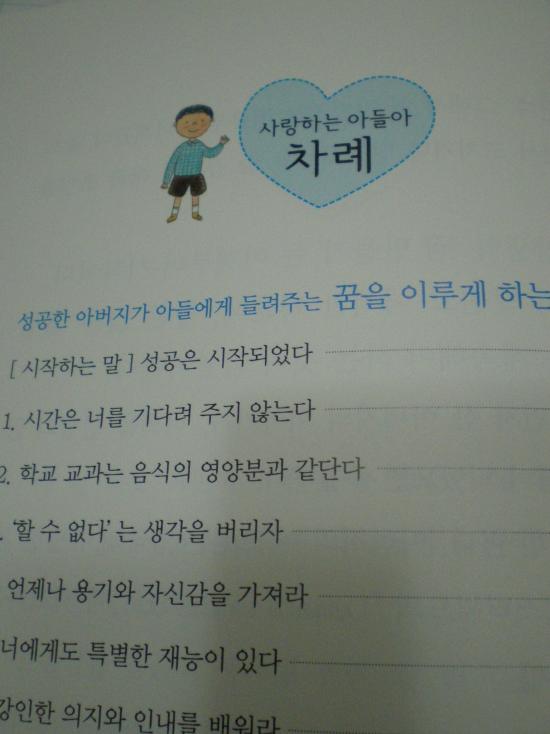 사랑하는 아들아
차례
성공한 아버지가 아들에게 들려주는 꿈을 이루게 하는
[ 시작하는 말 ] 성공은 시작되었다
1. 시간은 너를 기다려 주지 않는다
2. 학교 교과는 음식의 영양분과 같단다
. '할 수 없다' 는 생각을 버리자
언제나 용기와 자신감을 가져라
너에게도 특별한 재능이 있다
강인한 의지와 인내를 배워라